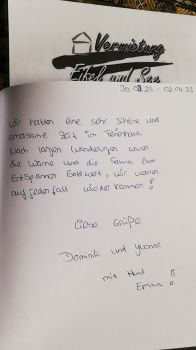 Vermietung
Eifel und See
30.08.23 - 02.09.23
Wir hatten eine sehr schöne und
erholsame Zeit im Ferienhaus.
Nach langen Wanderungen waren
die Wanne und die Sauna zum
Entspannen Gold wert, wir werden
auf jeden Fall wieder kommen!
Liebe Grüße
Dominik und Yvonne
mit Hund
Emma